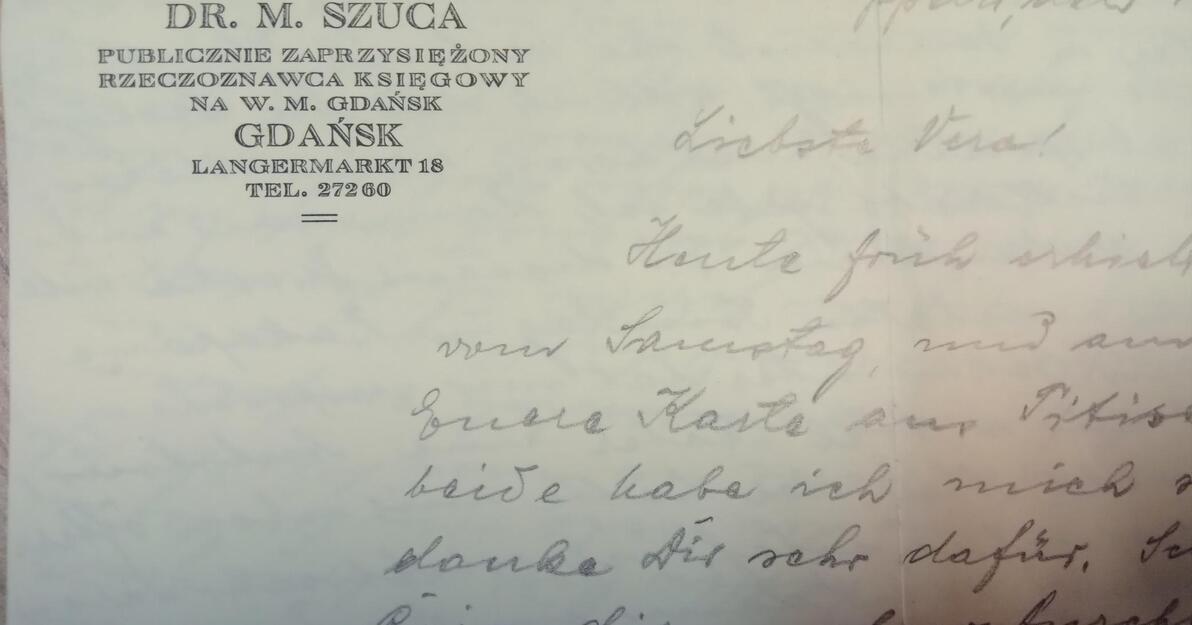 DR. M. SZUCA
PUBLICZNIE ZAPRZYSIĘŻONY
RZECZOZNAWCA KSIĘGOWY
NA W. M. GDAŃSK
GDAŃSK
LANGERMARKT 18
TEL. 27260
Liebste Vera!
Heute früh erhielt
vom Samstag, und
Euere Karte aus
beide habe ich mich
danke Dir sehr dafür.